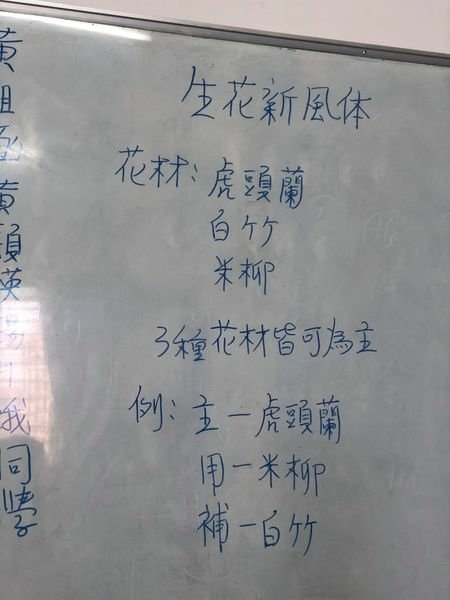 生花新風体
花材：虎頭蘭
白竹
米柳
3種花材皆可為主
例：主一虎頭蘭
用一米柳
補一白竹
黃
黃
英
我
同學